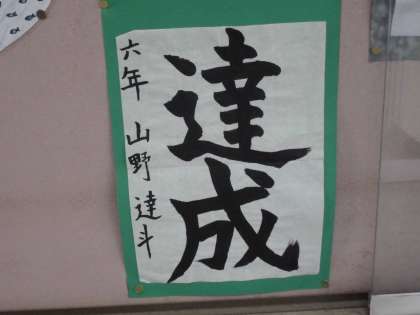 達成
六年 山野 達斗